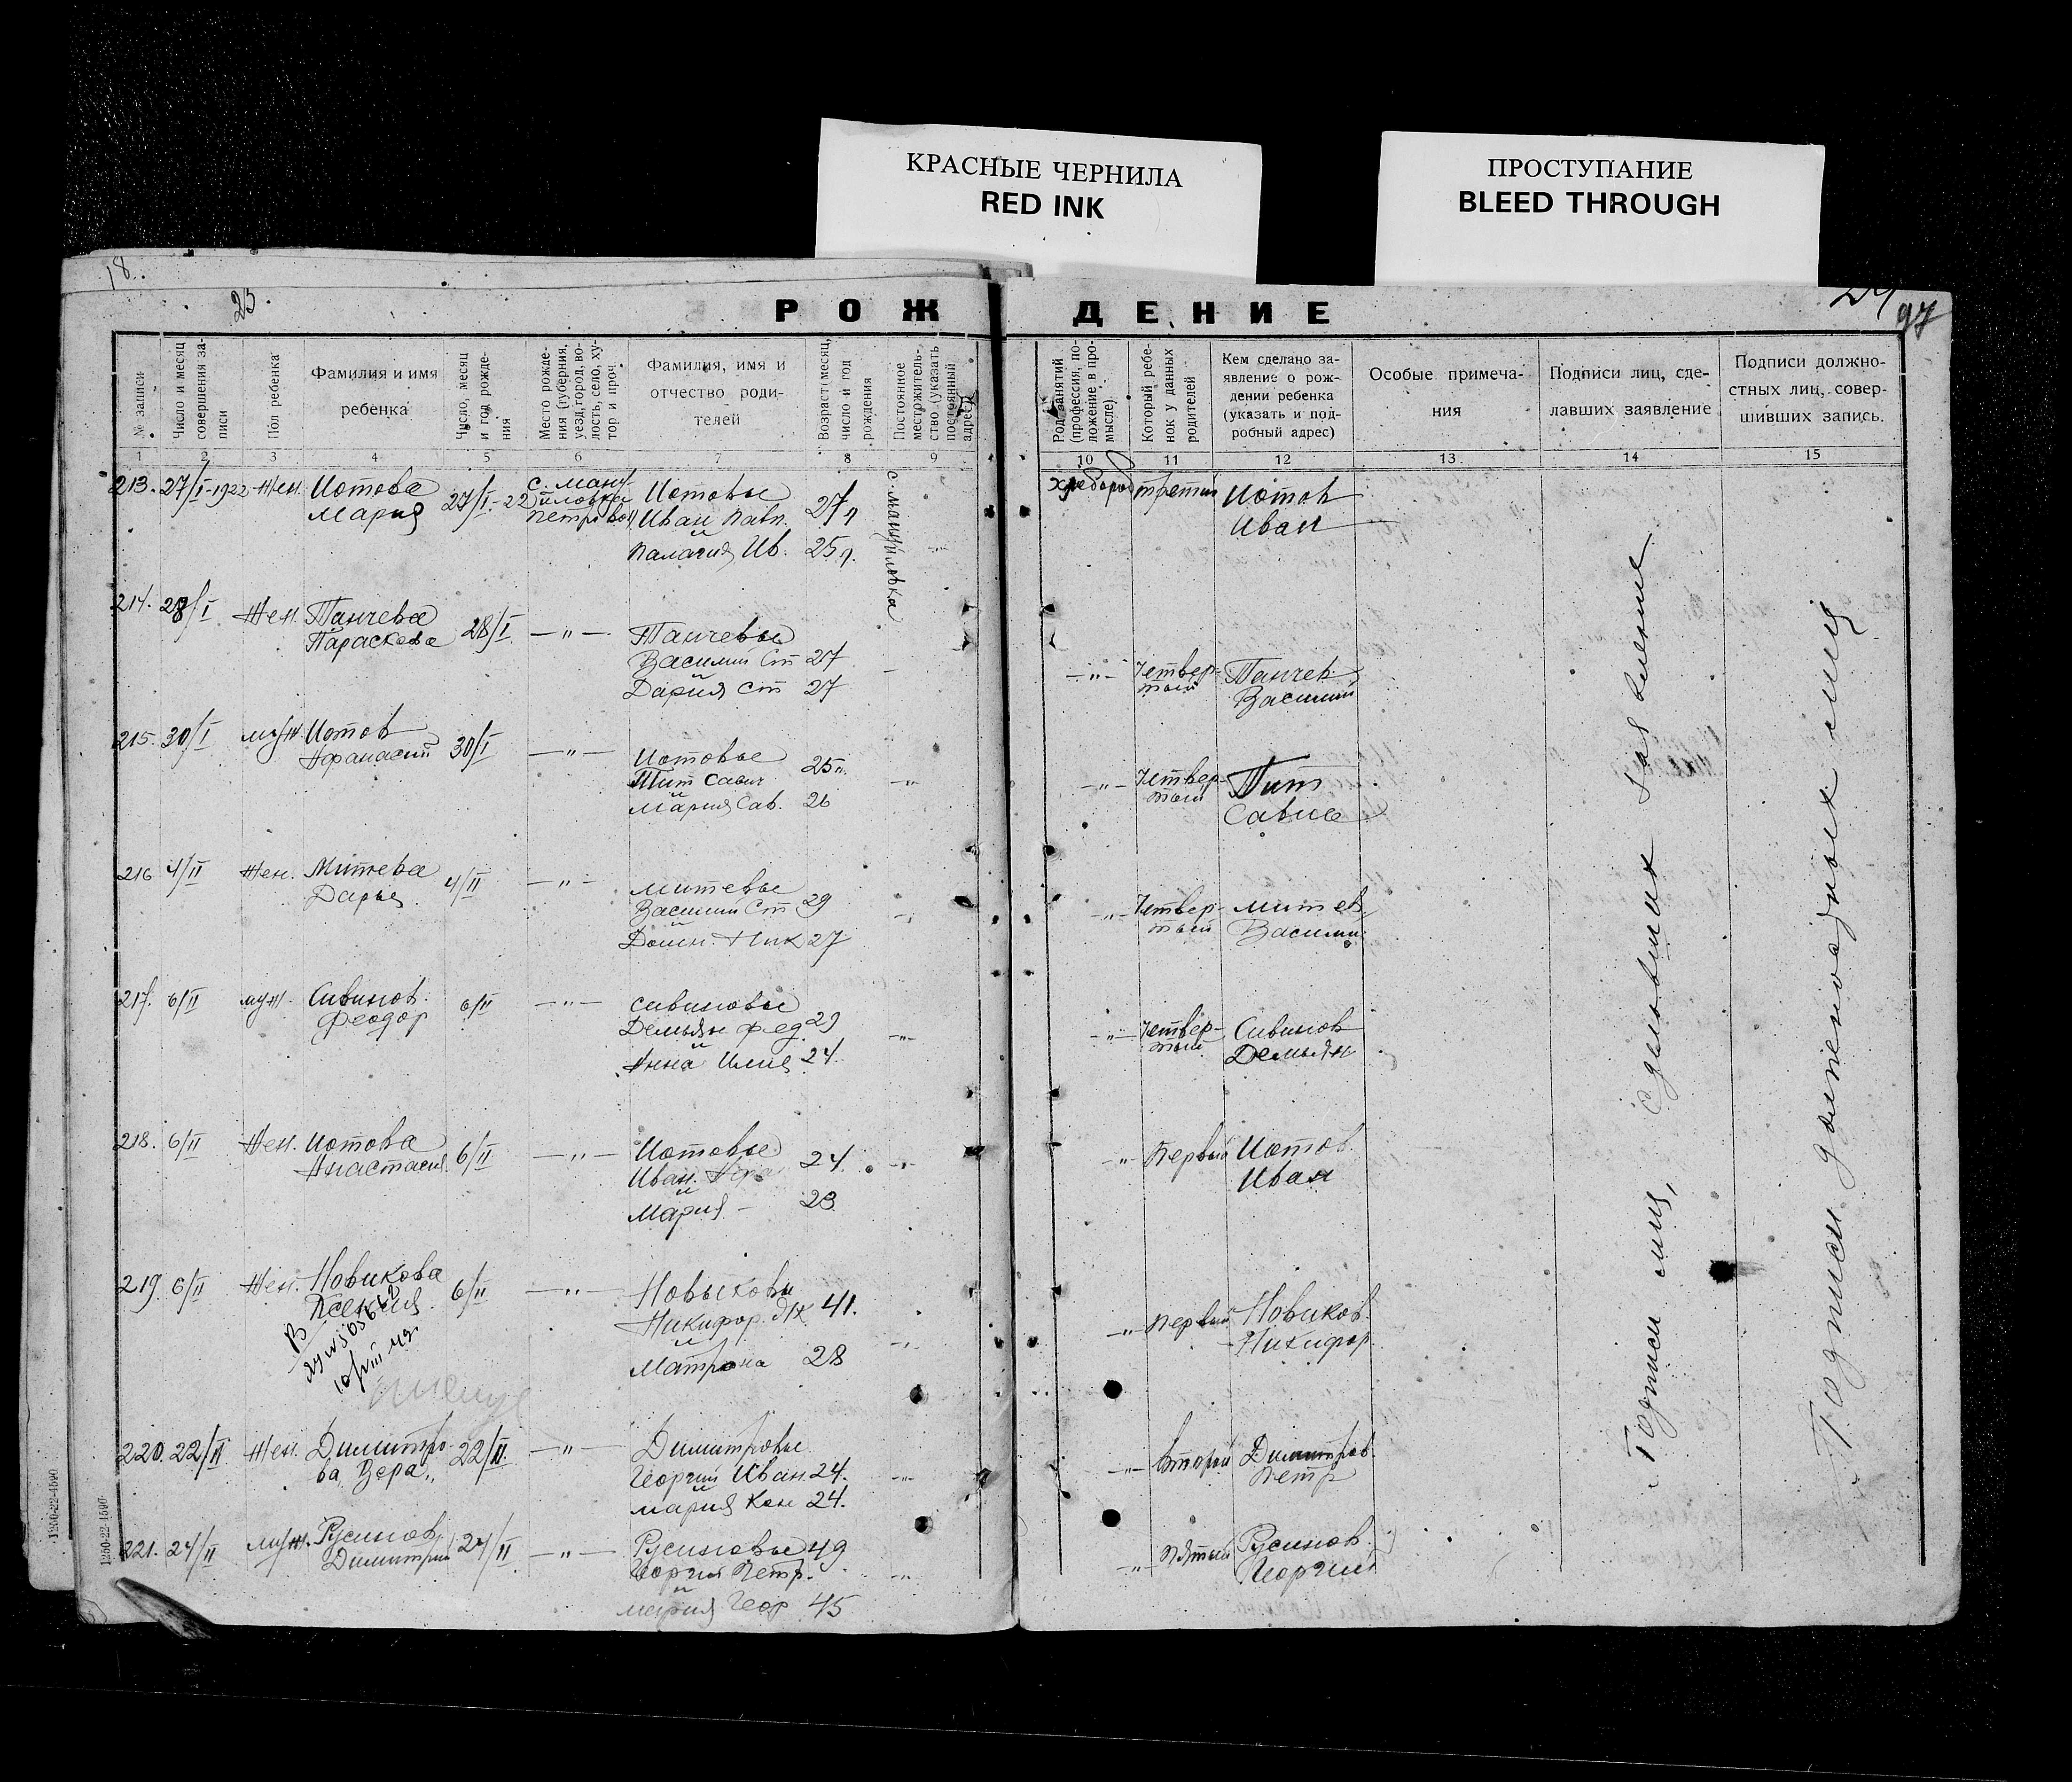 КРАСНЫЕ ЧЕРНИЛА
RED INK
ПРОСТУПАНИЕ
BLEED THROUGH
18.
23.
97
РОЖДЕНИЕ
№ записи
Число и месяц совершения за-
писи
Пол ребенка
Фамилия и имя
ребенка
Число, месяц
и год рожде-
ния
Место рожде-
ния (губерния,
уезд, город, во-
лость, село, ху-
тор и проч.
Фамилия, имя и
отчество роди-
телей
Возраст (месяц,
число и год
рождения
Постоянное
местожитель-
ство (указать
постоянный
адрес)
Род занятий
(профессия, по-
ложение в про-
мысле).
Который ребе-
нок у данных
родителей
Кем сделано за-
явление о рож-
дении ребенка
(указать и под-
робный адрес)
Особые примеча-
ния
Подписи лиц, сде-
лавших заявление
Подписи должно-
стных лиц, совер-
шивших запись.
1 2 3 4 5 6 7 8 9 10 11 12 13 14 15
213. 27/I-1922 Жен. Иотова Мария 27/I-22 с. Ману-
йловка
Петровой
Иотовые
Иван Павл. 27 л
и
Палагия Ив. 25 л.
с. Мануйловка
хлебороб третий Иотов
Иван
214. 28/I Жен. Панчева
Параскева 28/I —"— Панчевые
Василий Ст 27
и
Дария Ст 27
—"— Четвер-
тый Панчев
Василий
215. 30/I муж Иотов
Афанасий 30/I —"— Иотовые
Тит Савич 25 л.
и
Мария Сав. 26
—"— Четвер-
тый Тит
Савва
216 4/II Жен. Митева
Дарья 4/II —"— Митевые
Василий Ст 29
и
Домн. Ник 27
—"— Четвер-
тый Митев
Василий
217. 6/II муж. Сивинов
Феодор 6/II —"— Сивиновые
Демьян Фед 29
и
Анна Илие 24.
—"— Четвер-
тый Сивинов
Демьян
218. 6/II Жен. Иотова
Анастасия 6/II —"— Иотовые
Иван 24.
и
Мария – 23
—"— Первый Иотов
Иван
219. 6/II Жен. Новикова
Ксения 6/II —"— Новыковы
Никифор 41.
и
Матрона 28
—"— Первый Новиков
Никифор
220. 22/II Жен. Димитро-
ва Вера 22/II. —"— Димитровые
Георгий Иван 24.
и
Мария Кон 24.
—"— второй Димитров
Петр
221. 24/II муж. Русинов
Димитрий 24/II —"— Русиновые 49
Георгий Петр.
и
Мария Геор 45
—"— Пятый Русинов
Георгий
Подписи лиц, сделавших заявление
Подписи должностных лиц
1250-22-1590
1250-22-1590